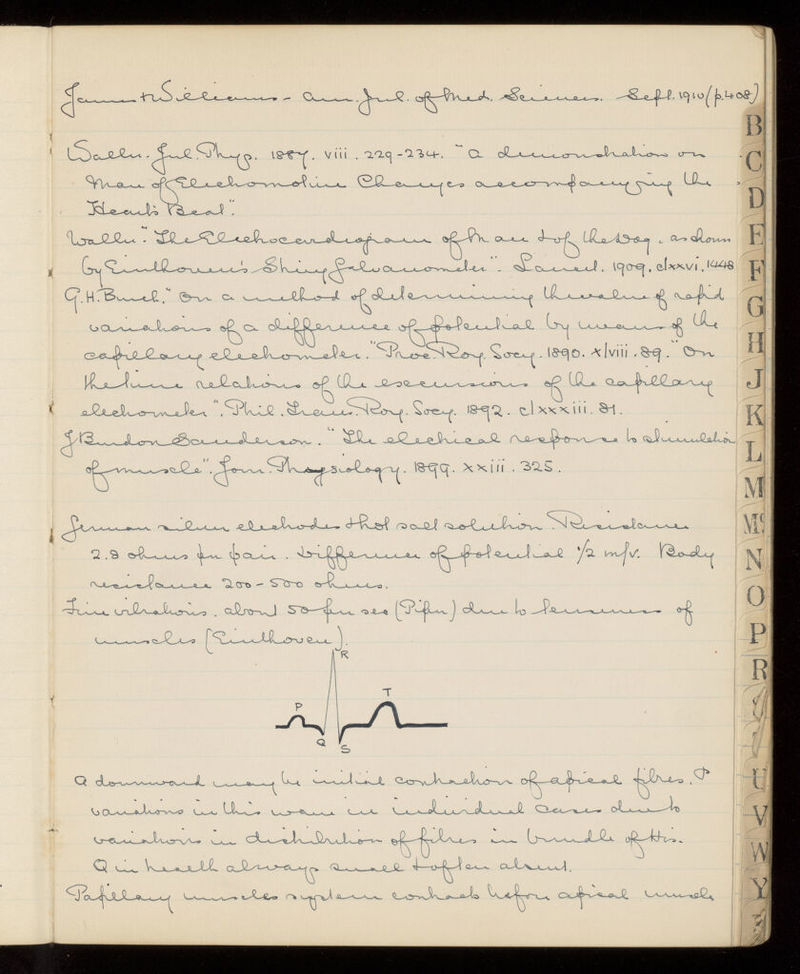 James & Williams - Am. Jnl. of Med. Sciences. Sept. 1910 (p. 408)
Waller. Jnl. Phys. 1887. viii. 229-234. "A demonstration on
Man of Electromotive Changes accompanying the
Heart's Beat".
Waller. "The Electrocardiogram of Man & of the Dog. as shown
by Einthoven's String Galvanometer". Lancet. 1909. clxxvi. 1448
G.H. Burch. "On a method of determining the value of rapid
variations of a difference of potential by means of the
capillary electrometer." Proc. Roy. Socy. 1890. xlviii. 89. "On
the time relations of the excursions of the capillary
electrometer". Phil. Trans. Roy. Socy. 1892. clxxxiii. 81.
J Burdon Sanderson. "The electrical response to stimulation
of muscle". Jorn. Physiology. 1899. xxiii. 325.
German silver electrodes & hot salt solution. Resistance
2.8 ohms per pair. Difference of potential 1/2 m/v. Body
resistance 200-500 ohms.
Fine vibrations. about 50 per sec (Piper) due to tenseness of
muscles (Einthoven).
R
P
T
Q
S
Q downward may be initial contraction of apical fibres. &
variations in this wave in individual cases due to
variations in distribution of fibres in bundle of His.
Q in health always small & often absent.
Papillary muscles system contracts before apical muscle
B
C
D
E
F
G
H
J
K
L
M
Mc
N
O
P
R
U
V
W
Y